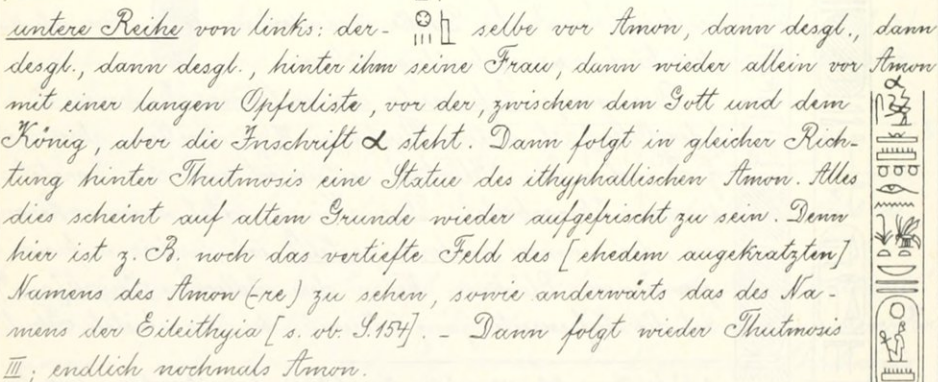 untere Reihe von links: der- selbe vor Amon, dann desgl., dann
desgl., dann desgl., hinter ihm seine Frau, dann wieder allein vor Amon
mit einer langen Opferliste, vor der, zwischen dem Gott und dem
König, aber die Inschrift α steht. Dann folgt in gleicher Rich-
tung hinter Thutmosis eine Statue des ithyphallischen Amon. Alles
dies scheint auf altem Grunde wieder aufgefrischt zu sein. Denn
hier ist z. B. noch das vertiefte Feld des [ehedem augekratzten]
Namens des Amon (-re) zu sehen, sowie anderwärts das des Na-
mens der Eileithyia [s. ob. S. 154]. - Dann folgt wieder Thutmosis
III; endlich nochmals Amon.
α